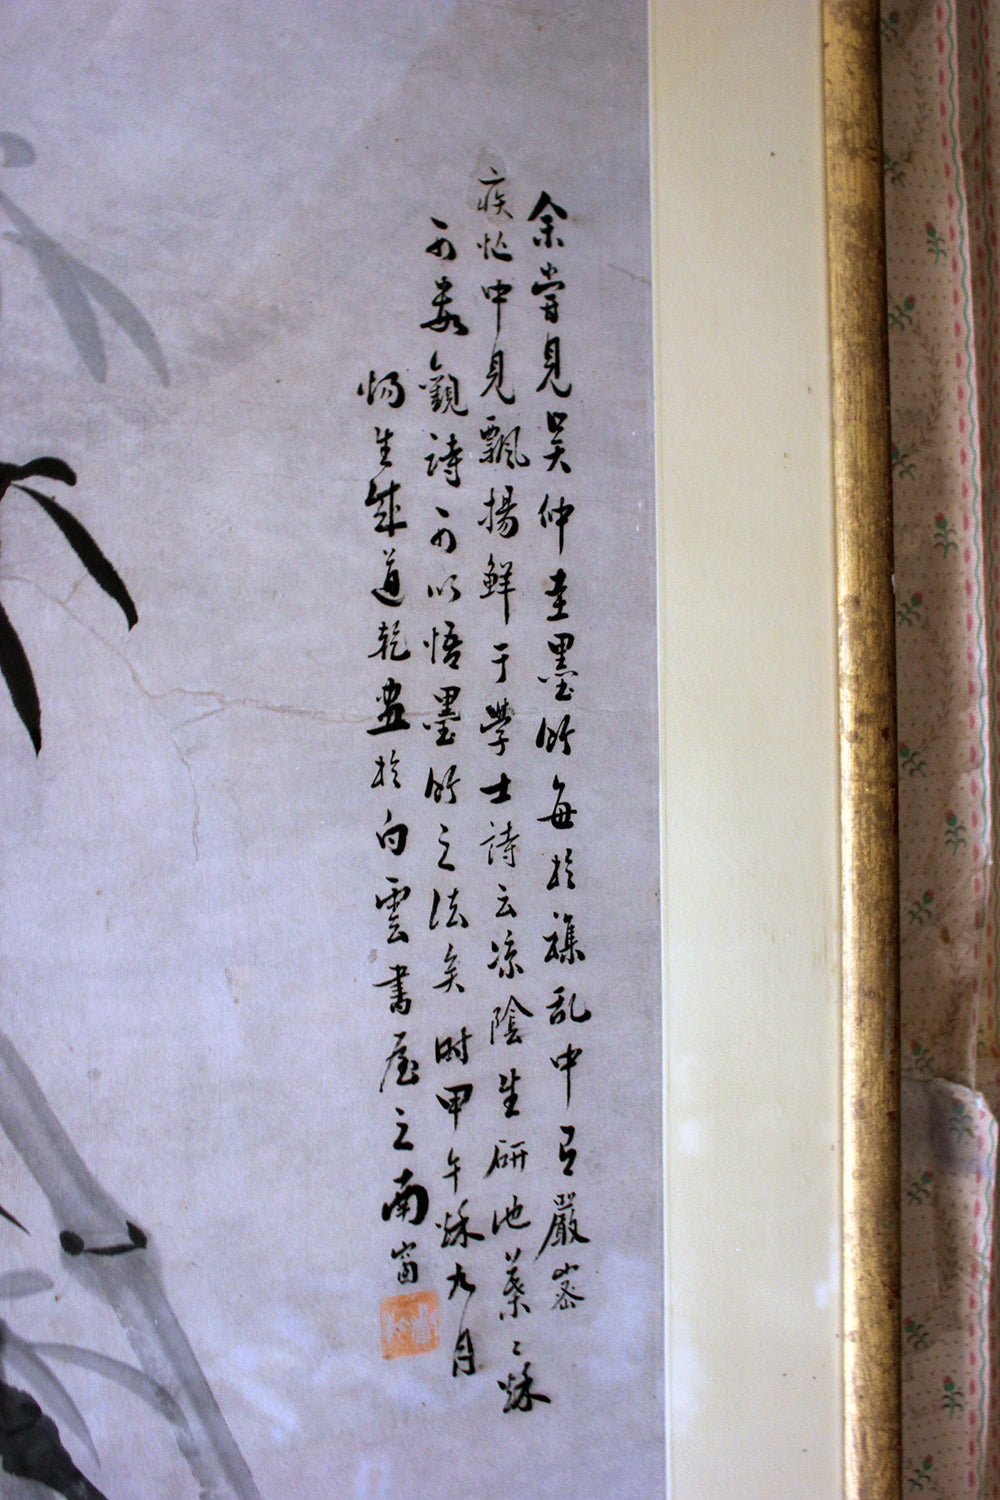 余嘗見吳仲圭墨竹每於襍乱中具嚴密
疾忙中見飄揚鮮于學士詩云凉陰生研池葉〻秌
可数觀詩可以悟墨竹之法矣时甲午秌九月
惕生成道乾畫於白雲書屋之南窗